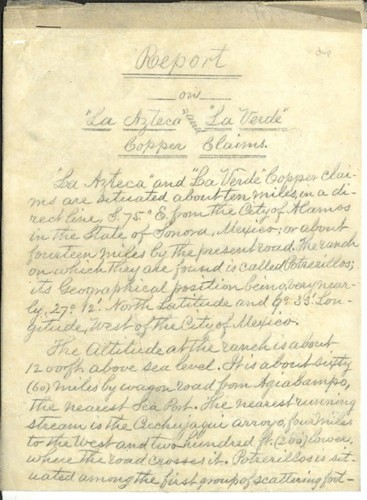 Report
on
"La Azteca" and "La Verde"
Copper Claims.
"La Azteca" and "La Verde" Copper clai-
ms are situated about ten miles, in a di-
rect line, S. 75° E. from the City of Alamos
in the State of Sonora, Mexico; or about
fourteen miles by the present road. The ranch
on which they are found is called Potrerillos;
its Geographical position being very near-
ly, 27° 12'. North Latitude and 9° 33'. Lon-
gitude, West of the City of Mexico.
The Altitude at the ranch is about
1200 ft. above sea level. It is about sixty
(60) miles by wagon road from Agiabampo,
the nearest Sea Port. The nearest running
stream is the Cuchujaqui arroyo, four miles
to the West and two hundred ft. (200) lower,
where the road crosses it. Potrerillos is sit-
uated among the first group of scattering foot-